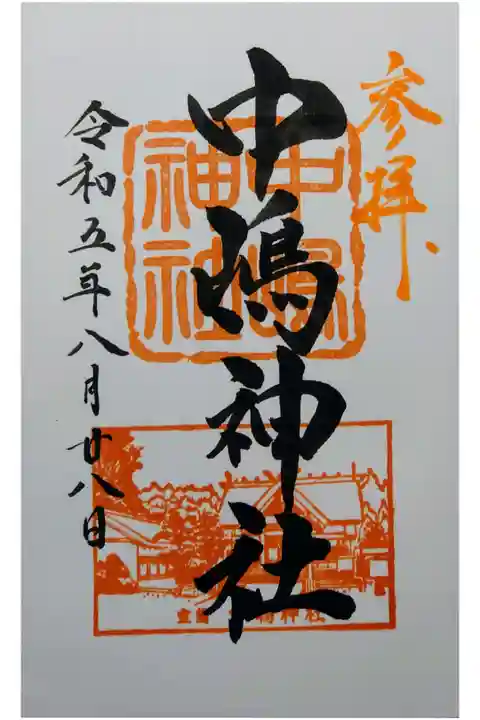 参拝
中嶋神社
令和五年八月廿八日
中嶋
神社
室蘭 中嶋神社